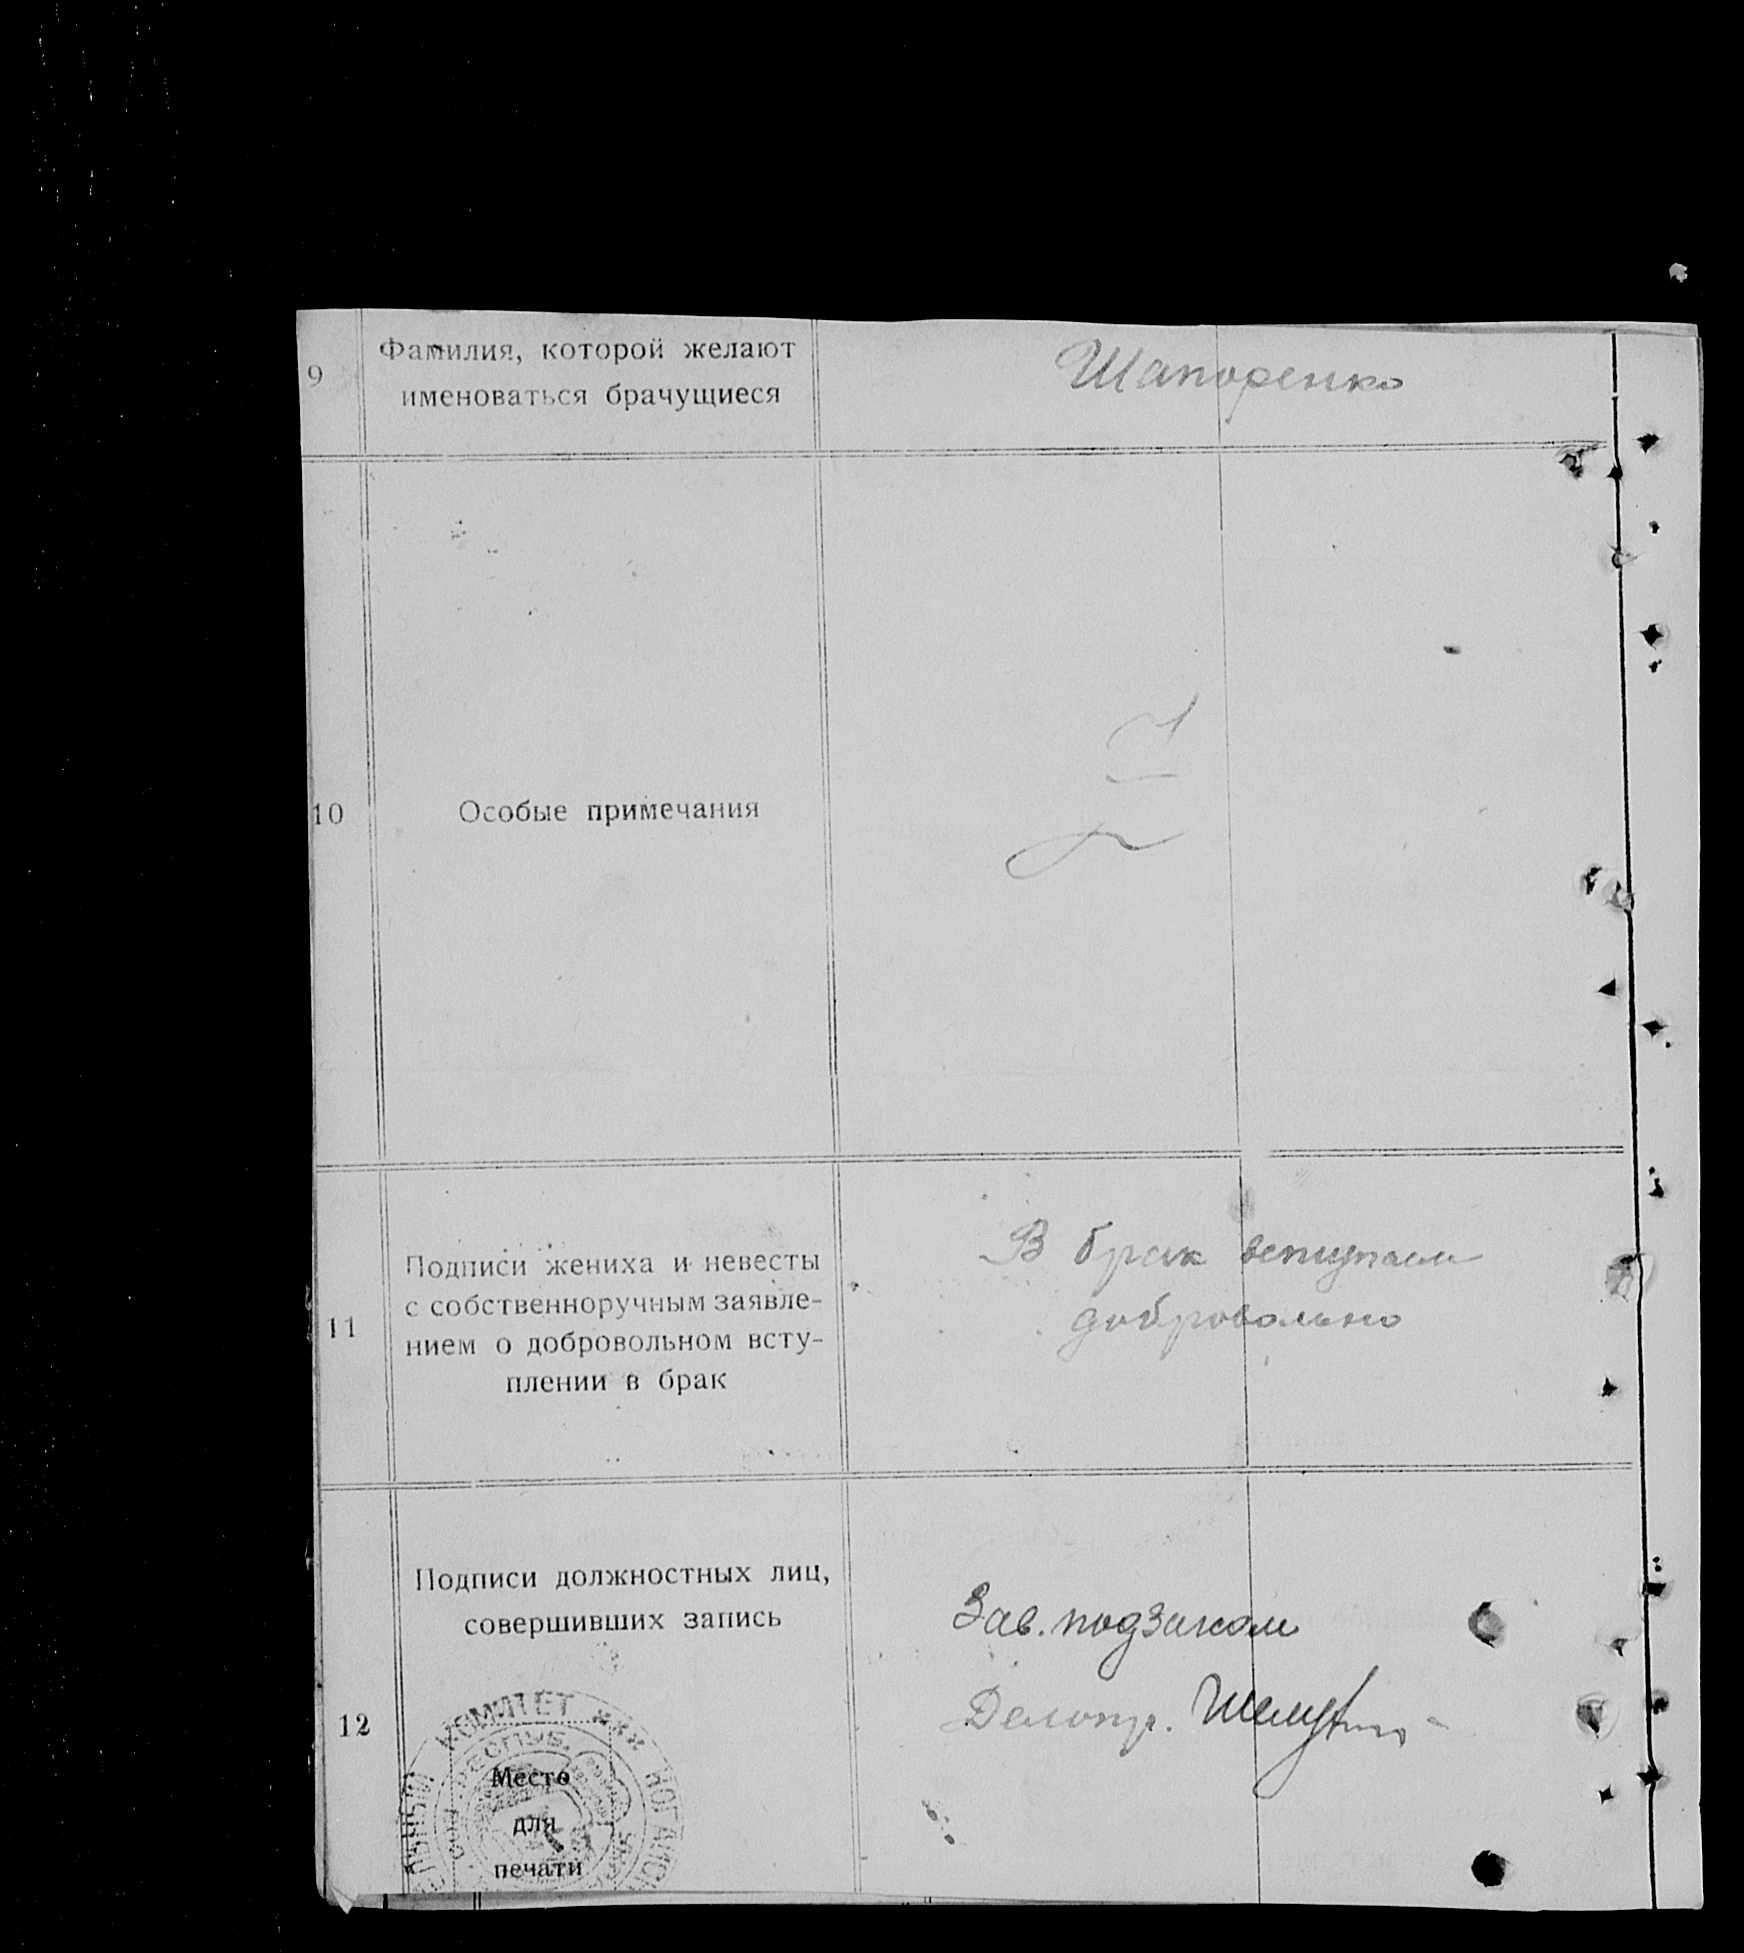 9
Фамилия, которой желают
именоваться брачущиеся
Шапоренко
10
Особые примечания
11
Подписи жениха и невесты
с собственноручным заявле-
нием о добровольном всту-
плении в брак
В брак вступаем
добровольно
12
Подписи должностных лиц,
совершивших запись
Зав. подзагсом
Делопр.
КОМИТЕТ
РЕСПУБ.
Место
для
печати